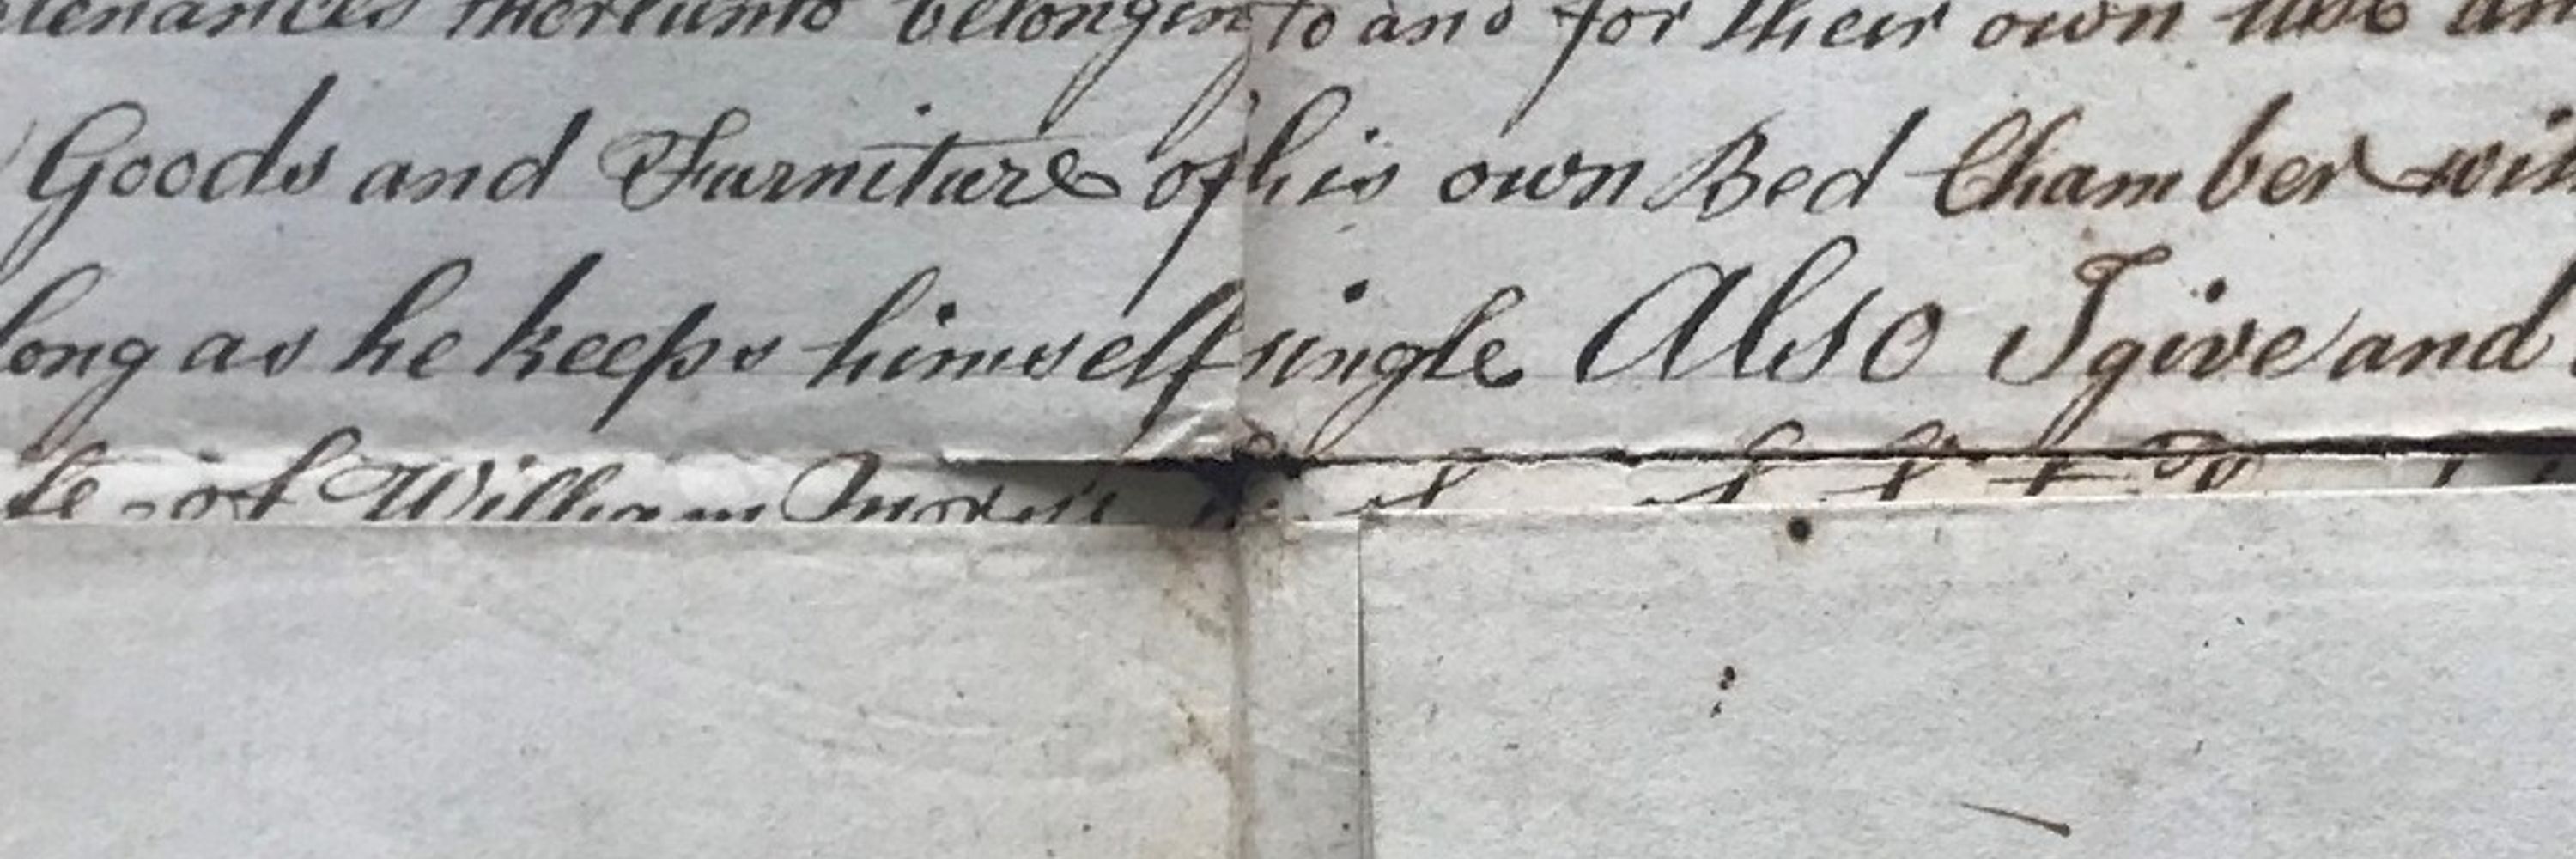 tenances thereunto belonging to and for their own use an
Goods and Furniture of his own Bed Chamber wit
long as he keeps himself single Also I give and
te of William